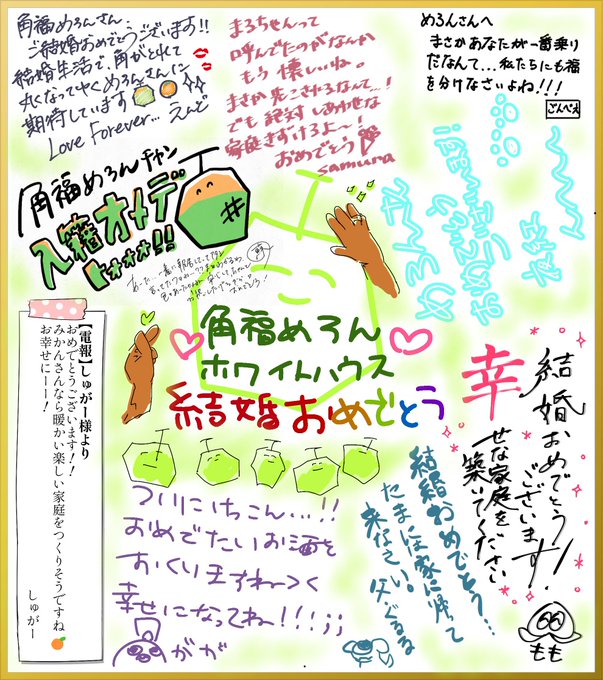 角福めろんさん
ご結婚おめでとうございます!!
結婚生活で、角がとれて
丸くなってゆくめろんさんに
期待しています
Love Forever... えんど
まろちゃんって
呼んでたのがなんか
もう懐しいね。
まさか先こされるなんて...!
でも絶対しあわせな
家庭きずけろよ〜!
おめでとう
samura
めろんさんへ
まさかあなたが一番乗り
だなんて...私たちにも福
を分けなさいよね!!!
ごんべえ
角福めろんチャン
入籍オメデ
トォォォ!!
めろんさん
おめでとう
角福めろん
ホワイトハウス
結婚おめでとう
【電報】しゅがー様より
おめでとうございます!!
みかんさんなら暖かい楽しい家庭をつくりそうですね
お幸せにーー!
しゅがー
結婚おめでとう
ございます!
幸
せな家庭を
築いてください
もも
ついにけっこん...!!
おめでたいお酒を
おくりますね〜つく
幸せになってね〜!!!;;
がが
結婚おめでとう...
たまには家に帰って
来なさい。父ぐるる